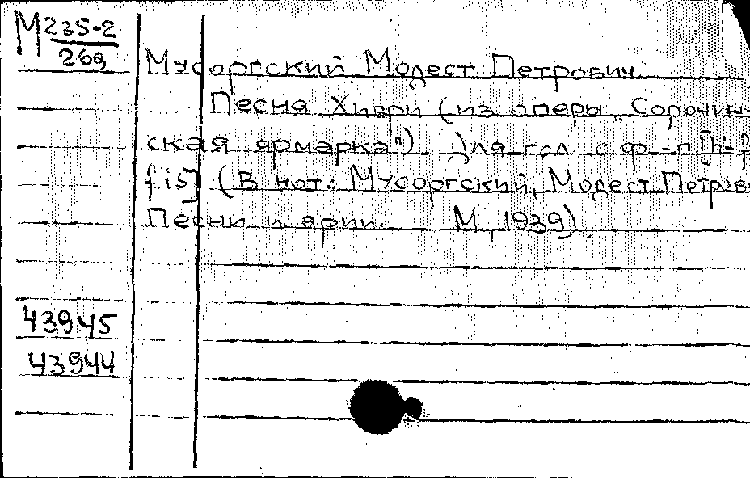 М 235-2
269
Мусоргский Модест Петрович.
Песня Хиври (из оперы „Сорочин-
ская ярмарка"). Для гол. с ф.-п. [h-
fis] (В кот.: Мусоргский, Модест Петров
Песни и арии. М., 1939)
43945
43944